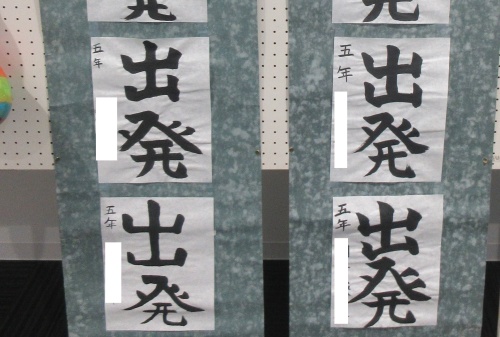 発
発
五年
出発
五年
出発
五年
出発
五年
出発